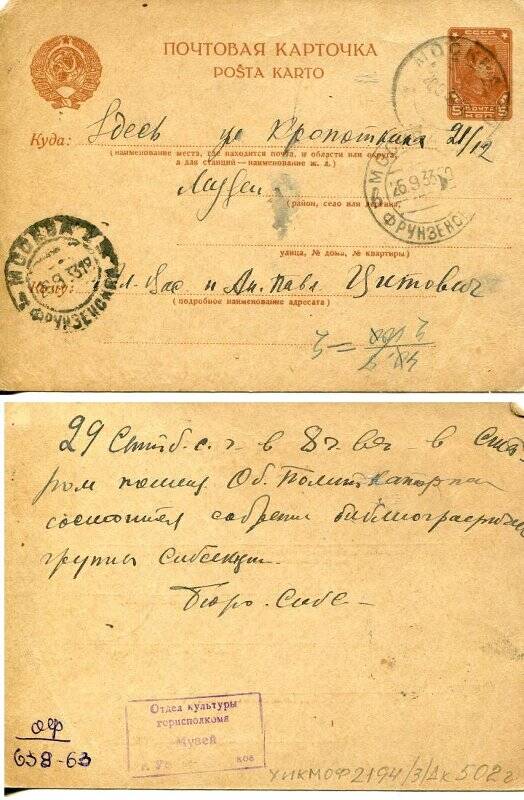 ПОЧТОВАЯ КАРТОЧКА
POŜTA KARTO
СССР
ПОЧТА
5 КОП 5
МОСКВА
Куда: Здесь ул Кропоткина 21/12
(наименование места, где находится почта, и области или округа,
а для станций—наименование ж. д.)
Музей
(район, село или деревня,
МО
26.9.33
ФРУНЗЕНСК
улица, № дома, № квартиры)
МОСКВА
9.33
ФРУНЗЕНСКИЙ
Кому: и Ан. Павл Цитович
(подробное наименование адресата)
29 Сентб. с. г. в 8 ч. веч в стар
ром помещ Об. Полит каторжан
состоится собрание библиографич
группы Сибсекции
Бюро. Сибс
Отдел культуры
горисполкома
Музей
г. У ков
оф
658-63
УИКМ ОФ 2194/3/Дк 502 г